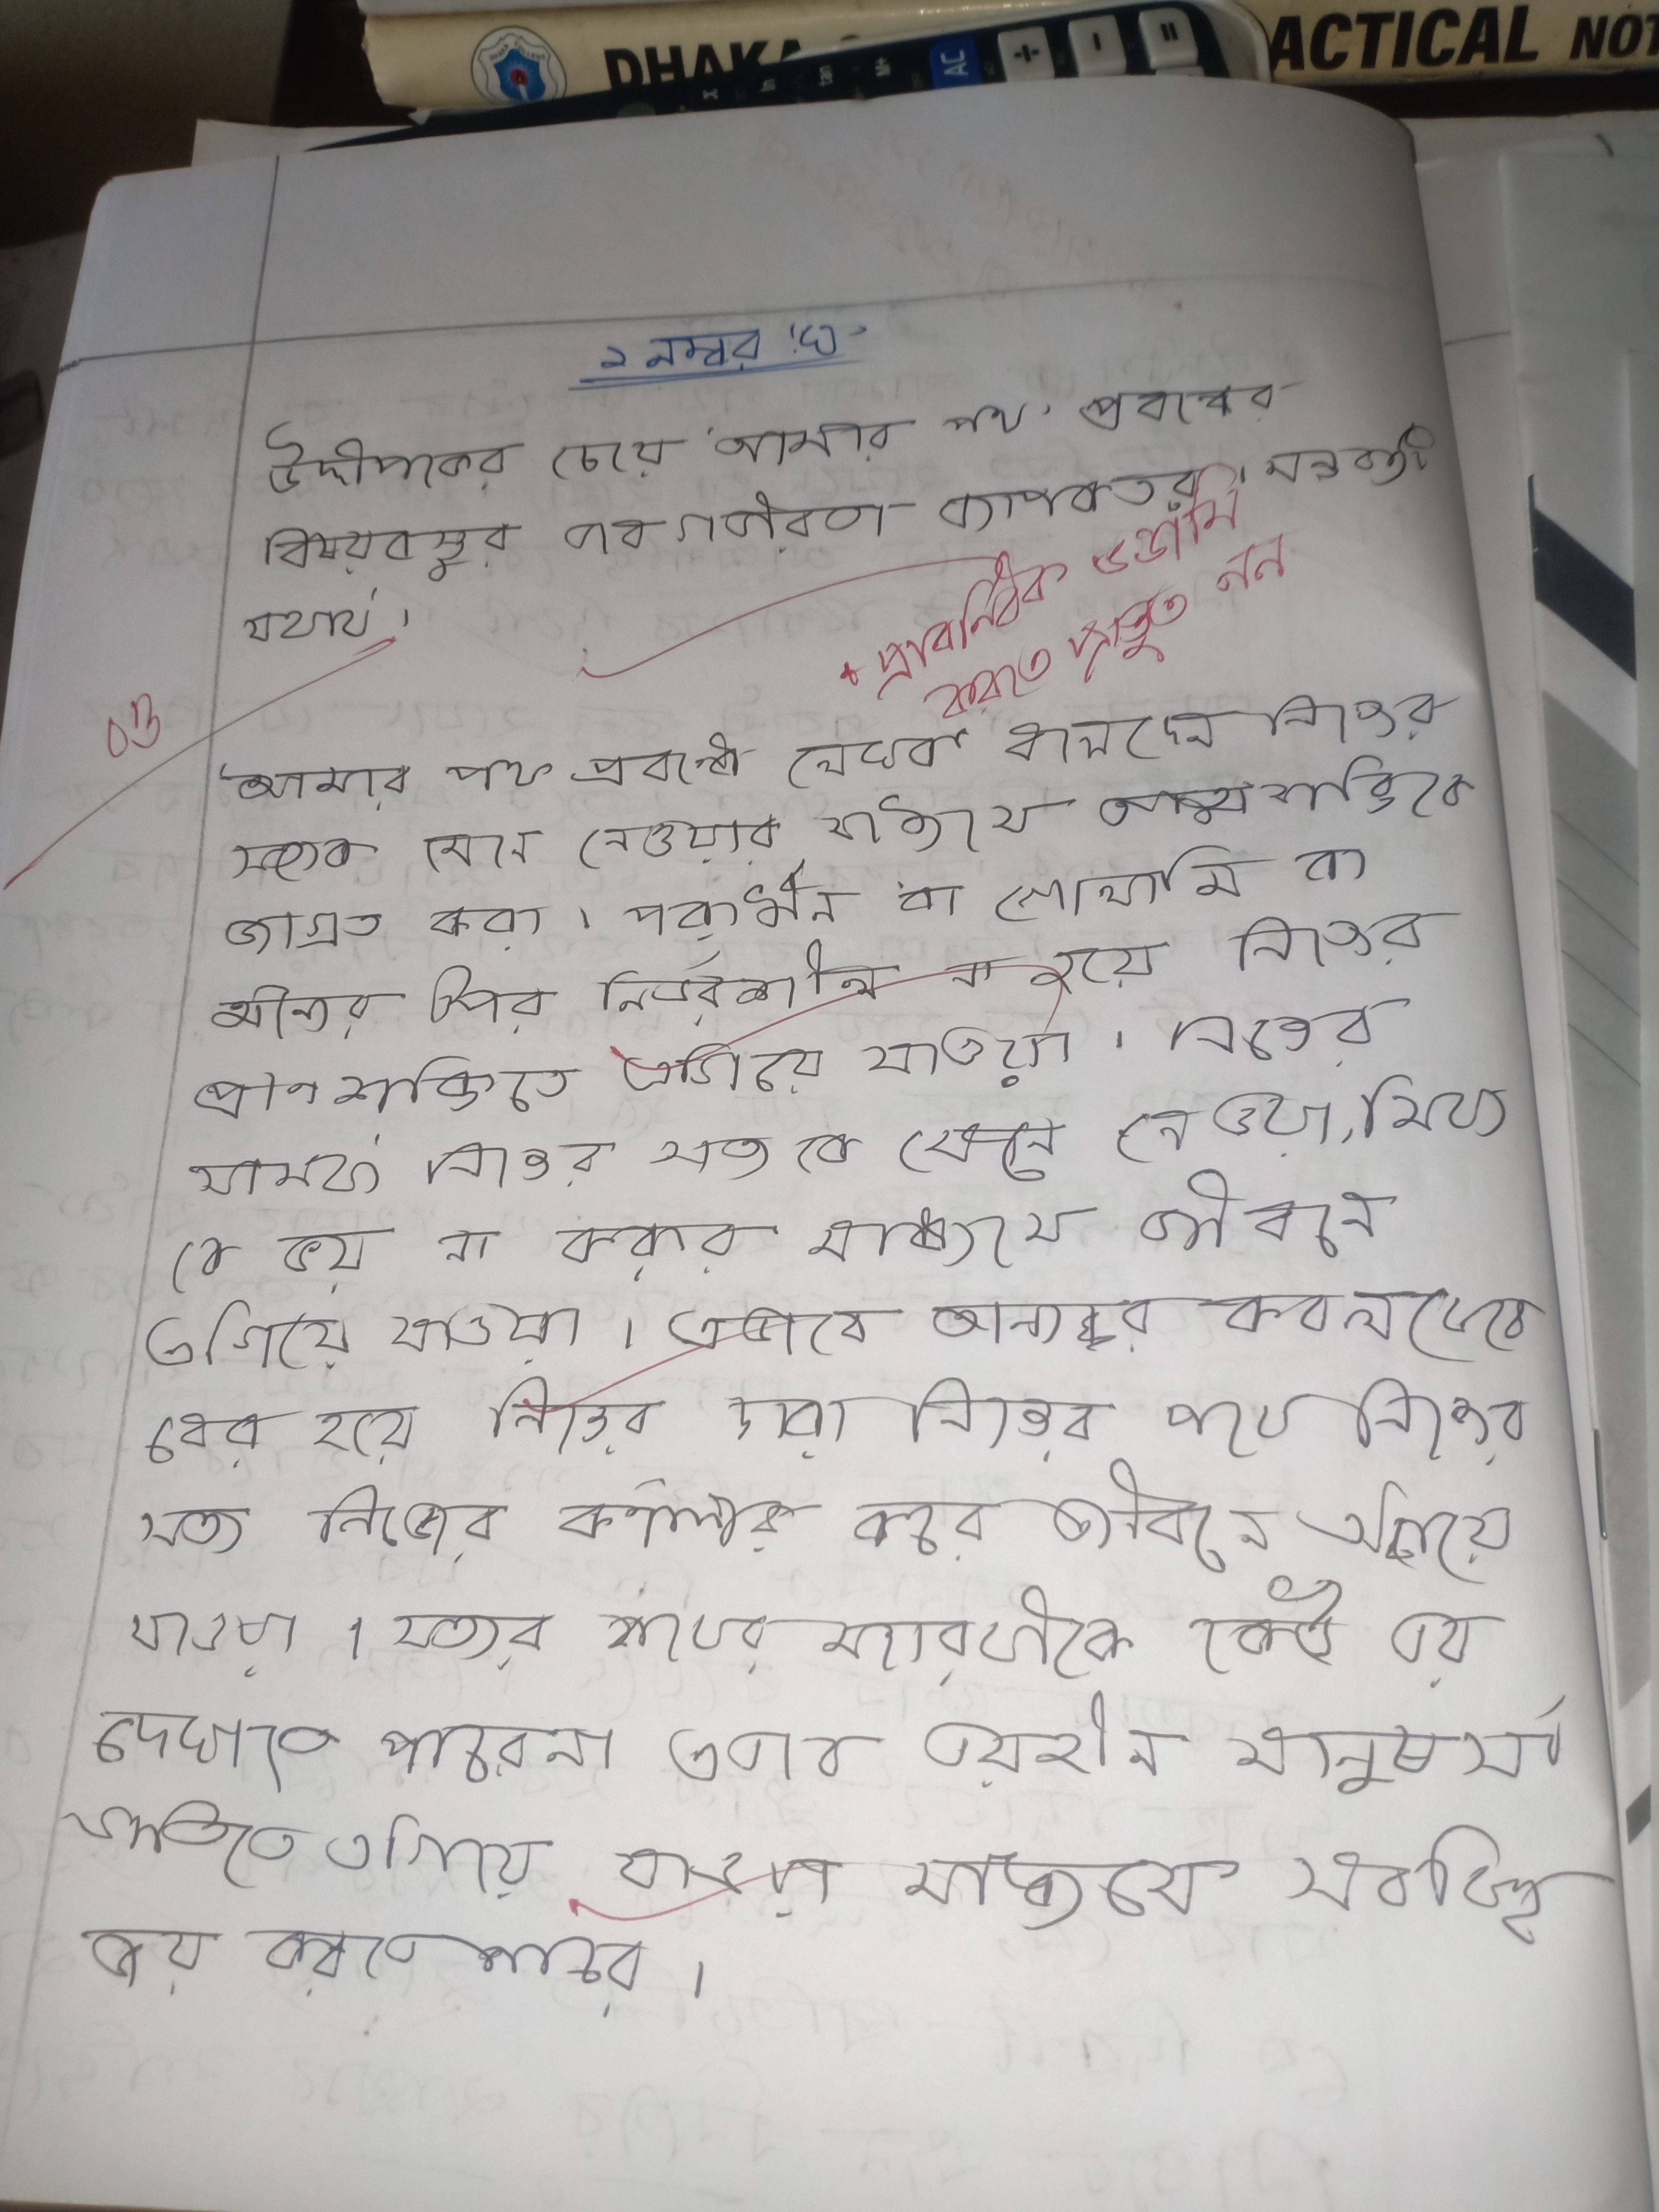 DHAKA
ACTICAL NOT
ln tan M+ AC ÷ - =
২ নম্বর 'ঘ'
উদ্দীপকের চেয়ে 'আমার পথ' প্রবন্ধের
বিষয়বস্তুর ভাবগভীরতা ব্যাপকতর। মন্তব্যটি
যথার্থ।
+ প্রাবন্ধিক ভন্ডামি
করতে প্রস্তুত নন
০৩
আমার পথ প্রবন্ধে লেখক নিজের
সত্যকে মেনে নেওয়ার মাধ্যমে আত্মশক্তিকে
জাগ্রত করা। পরাধীন বা গোলামি বা
অন্যের উপর নির্ভরশীল না হয়ে নিজের
প্রাণ শক্তিতে এগিয়ে যাওয়া। নিজের
সামর্থ্য নিজের সত্য কে মেনে নেওয়া, মিথ্যা
কে ভয় না করার মাধ্যমে জীবনে
এগিয়ে যাওয়া। এভাবে অন্যের কবল থেকে
বের হয়ে নিজের দ্বারা নিজের পথে নিজের
সত্য নিজের কর্ণধার করে জীবনে এগিয়ে
যাওয়া। সত্যের পথের কেউ ভয়
দেখাতে পারেনা এভাবে ভয়হীন মানুষ
এগিয়ে যাওয়ার মাধ্যমে সবকিছু
জয় করতে পারে।